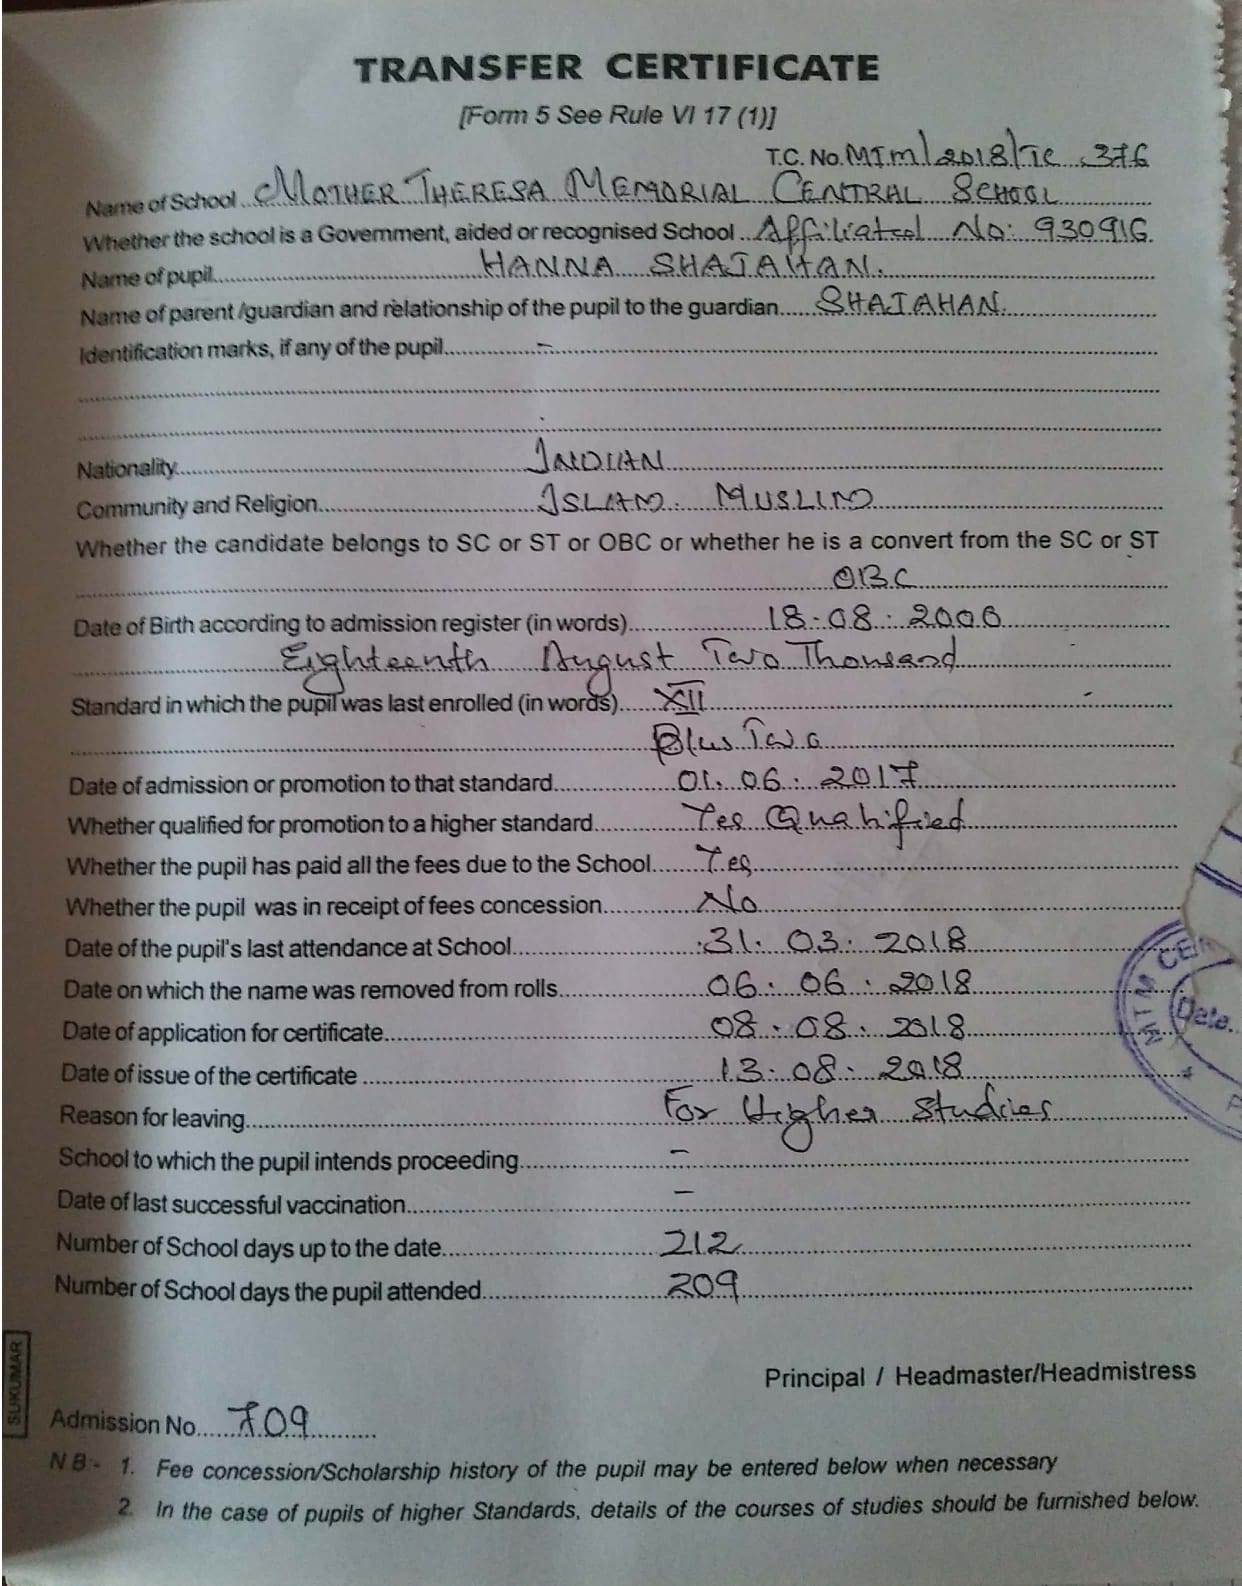 TRANSFER CERTIFICATE
[Form 5 See Rule VI 17 (1)]
T.C. No. MTM/2018/TC 376
Name of School MOTHER THERESA MEMORIAL CENTRAL SCHOOL
Whether the school is a Government, aided or recognised School Affiliated No: 930916
Name of pupil HANNA SHAJAHAN.
Name of parent /guardian and relationship of the pupil to the guardian SHAJAHAN.
Identification marks, if any of the pupil –
Nationality INDIAN
Community and Religion ISLAM. MUSLIM
Whether the candidate belongs to SC or ST or OBC or whether he is a convert from the SC or ST
OBC
Date of Birth according to admission register (in words) 18-08-2000
Eighteenth August Two Thousand
Standard in which the pupil was last enrolled (in words) XII
Plus Two
Date of admission or promotion to that standard 01.06.2017
Whether qualified for promotion to a higher standard Yes Qualified
Whether the pupil has paid all the fees due to the School Yes
Whether the pupil was in receipt of fees concession No
Date of the pupil's last attendance at School 31.03.2018
Date on which the name was removed from rolls 06.06.2018
Date of application for certificate 08.08.2018
Date of issue of the certificate 13.08.2018
Reason for leaving For Higher Studies
School to which the pupil intends proceeding –
Date of last successful vaccination –
Number of School days up to the date 212
Number of School days the pupil attended 209
MTM CE
Date.
Principal / Headmaster/Headmistress
SUKUMAR
Admission No 709
NB:- 1. Fee concession/Scholarship history of the pupil may be entered below when necessary
2. In the case of pupils of higher Standards, details of the courses of studies should be furnished below.